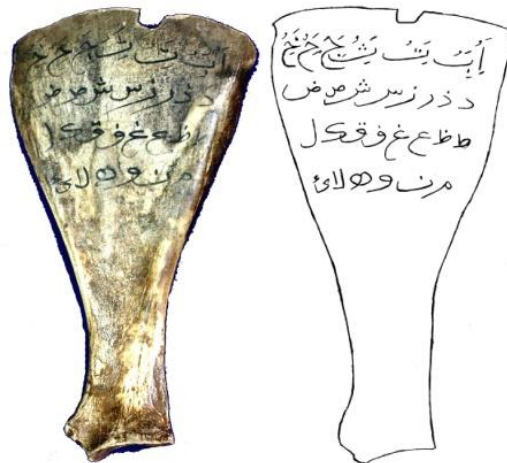 اَُ بَُ تَُ ثَُ جَُ حَُ خَُ
د ذ ر ز س ش ص ض
ط ظ ع غ ف ق ك ل
م ن و ه لا ئ
اَُ بَُ تَُ ثَُ جَُ حَُ خَُ
د ذ ر ز س ش ص ض
ط ظ ع غ ف ق ك ل
م ن و ه لا ئ